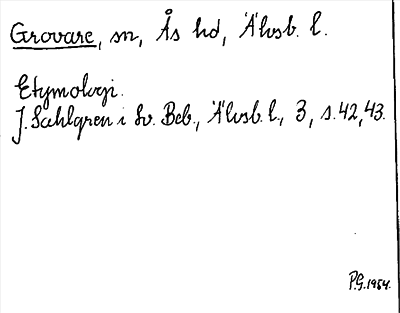 Grovare, sn, Ås hd, Älvsb. l.
Etymologi.
J. Sahlgren i Sv. Beb., Älvsb. l., 3, s. 42, 43.
P.G. 1954.